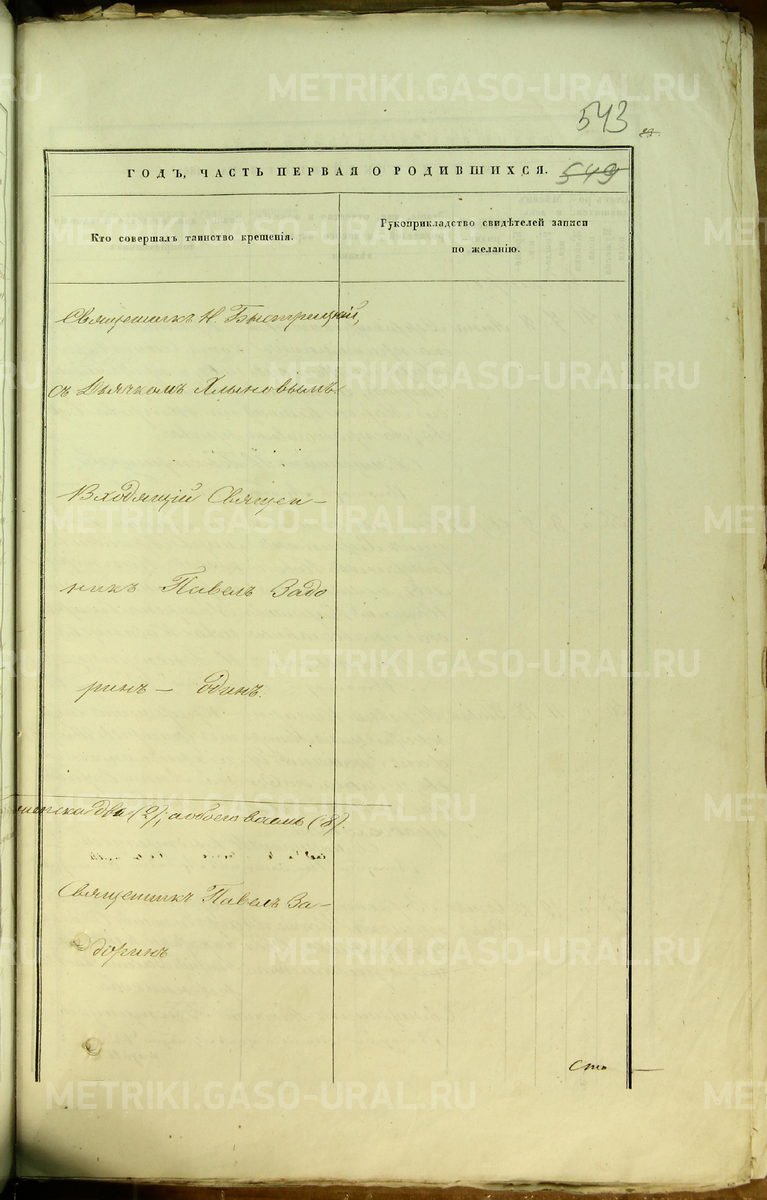 543
549
ГОДЪ, ЧАСТЬ ПЕРВАЯ О РОДИВШИХСЯ.
Кто совершалъ таинство крещенія.
Рукоприкладство свидѣтелей записи
по желанію.
Священникъ Н. Быстрицкій,
съ Дьячкомъ Хлыновымъ
Входящій Священ-
никъ Павелъ Задо
ринъ — одинъ.
два (2), а обоего восмь (8).
Священникъ Павелъ За-
доринъ
Сто
METRIKI.GASO-URAL.RU